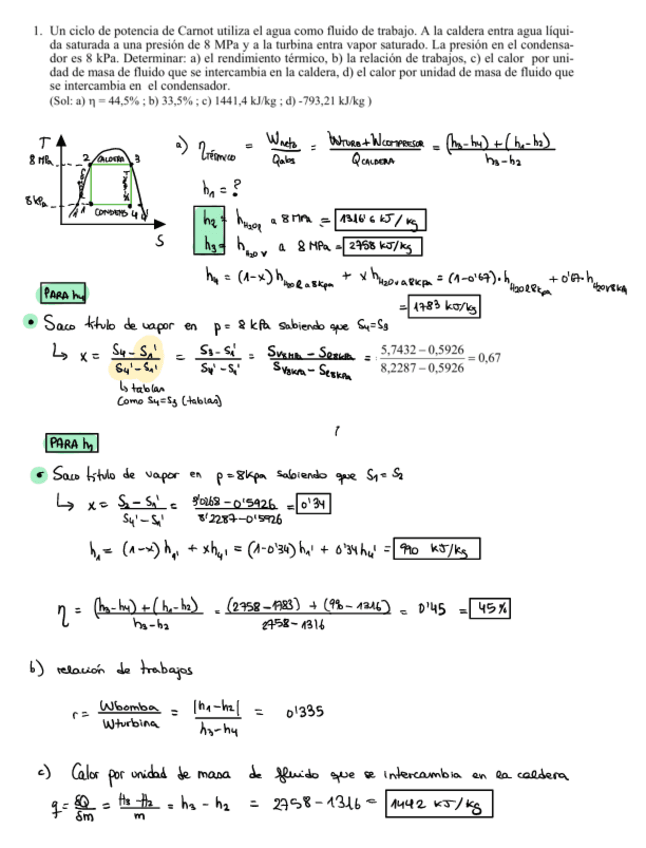 1. Un ciclo de potencia de Carnot utiliza el agua como fluido de trabajo. A la caldera entra agua líqui-
da saturada a una presión de 8 MPa y a la turbina entra vapor saturado. La presión en el condensa-
dor es 8 kPa. Determinar: a) el rendimiento térmico, b) la relación de trabajos, c) el calor por uni-
dad de masa de fluido que se intercambia en la caldera, d) el calor por unidad de masa de fluido que
se intercambia en el condensador.
(Sol: a) η = 44,5% ; b) 33,5% ; c) 1441,4 kJ/kg ; d) -793,21 kJ/kg )
T
8 MPa
2 CALDERA 3
8 kPa
1 CONDENS 4
S
a) η térmico = Wneto / Qabs = WTURB + WCOMPRESOR / QCALDERA = (h3-h4) + (h1-h2) / h3-h2
h1 = ?
h2 = hH2Oℓ a 8 MPa = 1316'6 kJ/kg
h3 = hH2O v a 8 MPa = 2758 kJ/kg
h4 = (1-x) hH2Oℓ a 8kPa + x hH2O v a 8kPa = (1-0'67)·hH2Oℓ 8kPa + 0'67·hH2O v 8kPa
= 1783 kJ/kg
PARA h4
• Saco título de vapor en p = 8 kPa sabiendo que S4=S3
↳ x = S4 - S1' / S4' - S1' = S3 - S1' / S4' - S1' = SV8MPa - Sℓ8kPa / SV8kPa - Sℓ8kPa = 5,7432 − 0,5926 / 8,2287 − 0,5926 = 0,67
↳ tablas
Como S4=S3 (tablas)
PARA h1
• Saco título de vapor en p = 8kpa sabiendo que S1 = S2
↳ x = S2 - S1' / S4' - S1' = 3'0268 - 0'5926 / 8'2287 - 0'5926 = 0'34
h1 = (1-x) h1' + x h4' = (1-0'34) h1' + 0'34 h4' = 990 kJ/kg
η = (h3-h4) + (h1-h2) / h3-h2 = (2758-1783) + (98-1316) / 2758-1316 = 0'45 = 45%
b) relación de trabajos
r = Wbomba / Wturbina = |h1-h2| / h3-h4 = 0'335
c) Calor por unidad de masa de fluido que se intercambia en la caldera
q = δQ / δm = H3 - H2 / m = h3 - h2 = 2758 - 1316 = 1442 kJ/kg